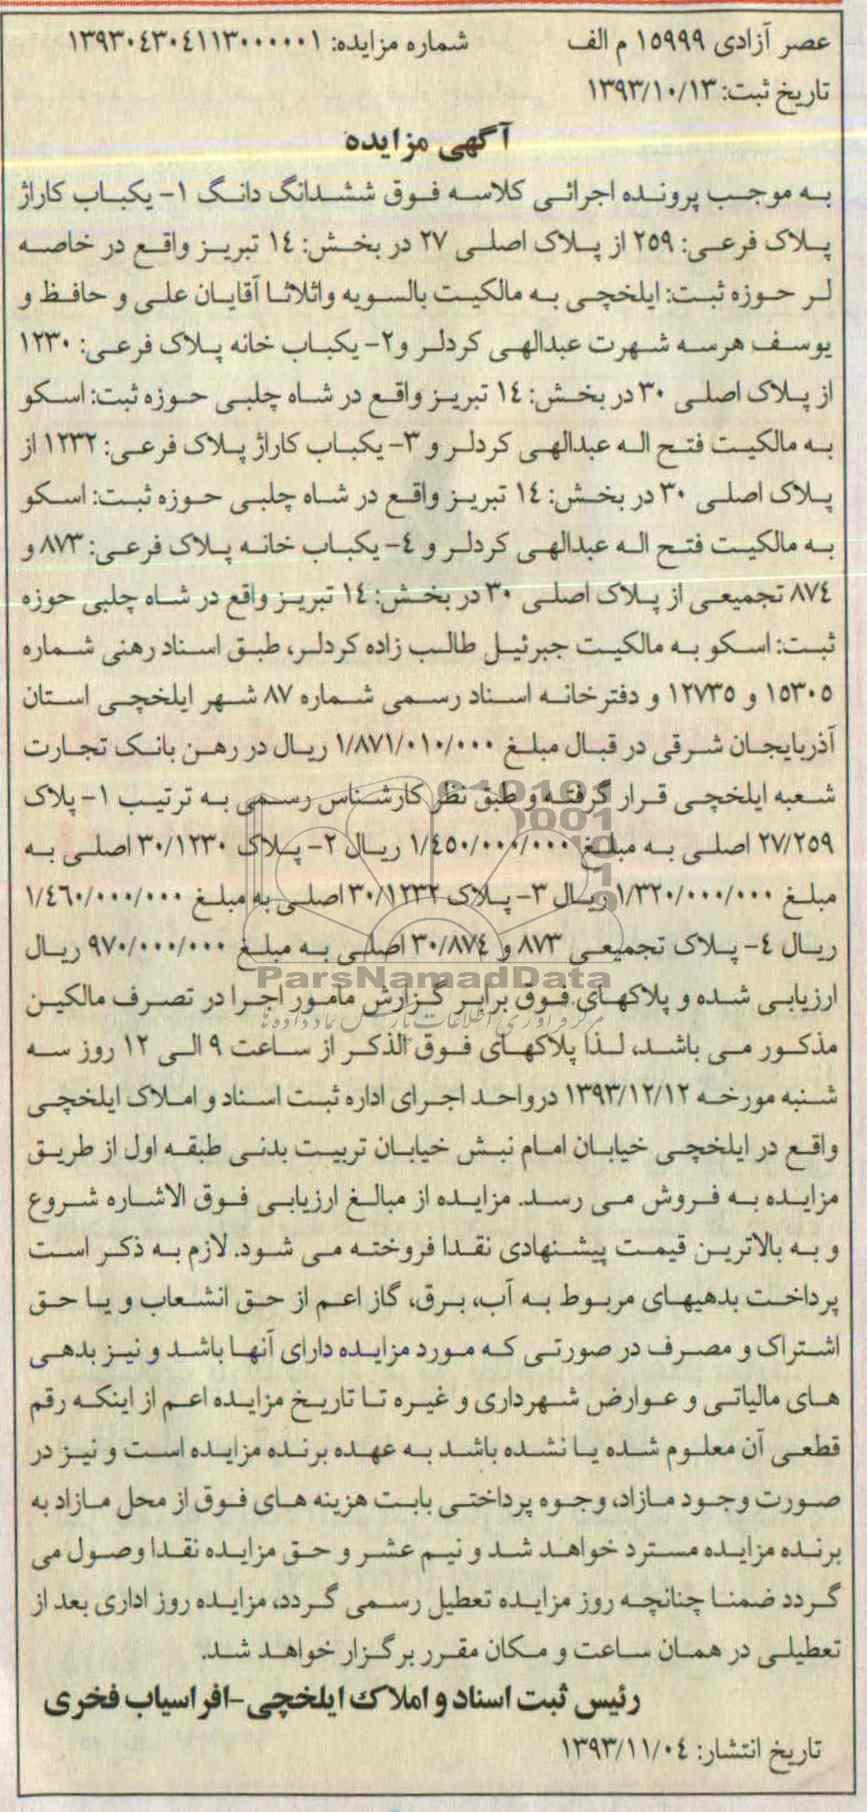 عصر آزادی ۱۵۹۹۹ م الف شماره مزایده: ۱۳۹۳۰۴۳۰۴۱۱۳۰۰۰۰۰۱
تاریخ ثبت: ۱۳۹۳/۱۰/۱۳
آگهی مزایده
به موجب پرونده اجرائی کلاسه فوق ششدانگ دانگ ۱- یکباب کاراژ
پلاک فرعی: ۲۵۹ از پلاک اصلی ۲۷ در بخش: ۱۴ تبریز واقع در خاصه
لر حوزه ثبت: ایلخچی به مالکیت بالسویه واثلاثا آقایان علی و حافظ و
یوسف هرسه شهرت عبدالهی کردلر و۲- یکباب خانه پلاک فرعی: ۱۲۳۰
از پلاک اصلی ۳۰ در بخش: ۱۴ تبریز واقع در شاه چلبی حوزه ثبت: اسکو
به مالکیت فتح اله عبدالهی کردلر و ۳- یکباب کاراژ پلاک فرعی: ۱۲۳۲ از
پلاک اصلی ۳۰ در بخش: ۱۴ تبریز واقع در شاه چلبی حوزه ثبت: اسکو
به مالکیت فتح اله عبدالهی کردلر و ۴- یکباب خانه پلاک فرعی: ۸۷۳ و
۸۷۴ تجمیعی از پلاک اصلی ۳۰ در بخش: ۱۴ تبریز واقع در شاه چلبی حوزه
ثبت: اسکو به مالکیت جبرئیل طالب زاده کردلر، طبق اسناد رهنی شماره
۱۵۳۰۵ و ۱۲۷۳۵ و دفترخانه اسناد رسمی شماره ۸۷ شهر ایلخچی استان
آذربایجان شرقی در قبال مبلغ ۱/۸۷۱/۰۱۰/۰۰۰ ریال در رهن بانک تجارت
شعبه ایلخچی قرار گرفته و طبق نظر کارشناس رسمی به ترتیب ۱- پلاک
۲۷/۲۵۹ اصلی به مبلغ ۱/۴۵۰/۰۰۰/۰۰۰ ریال ۲- پلاک ۳۰/۱۲۳۰ اصلی به
مبلغ ۱/۳۲۰/۰۰۰/۰۰۰ ریال ۳- پلاک ۳۰/۱۲۳۲ اصلی به مبلغ ۱/۴۶۰/۰۰۰/۰۰۰
ریال ۴- پلاک تجمیعی ۸۷۳ و ۳۰/۸۷۴ اصلی به مبلغ ۹۷۰/۰۰۰/۰۰۰ ریال
ParsNamadData
ارزیابی شده و پلاکهای فوق برابر گزارش مامور اجرا در تصرف مالکین
مذکور می باشد، لذا پلاکهای فوق الذکر از ساعت ۹ الی ۱۲ روز سه
شنبه مورخه ۱۳۹۳/۱۲/۱۲ درواحد اجرای اداره ثبت اسناد و املاک ایلخچی
واقع در ایلخچی خیابان امام نبش خیابان تربیت بدنی طبقه اول از طریق
مزایده به فروش می رسد. مزایده از مبالغ ارزیابی فوق الاشاره شروع
و به بالاترین قیمت پیشنهادی نقدا فروخته می شود. لازم به ذکر است
پرداخت بدهیهای مربوط به آب، برق، گاز اعم از حق انشعاب و یا حق
اشتراک و مصرف در صورتی که مورد مزایده دارای آنها باشد و نیز بدهی
های مالیاتی و عوارض شهرداری و غیره تا تاریخ مزایده اعم از اینکه رقم
قطعی آن معلوم شده یا نشده باشد به عهده برنده مزایده است و نیز در
صورت وجود مازاد، وجوه پرداختی بابت هزینه های فوق از محل مازاد به
برنده مزایده مسترد خواهد شد و نیم عشر و حق مزایده نقدا وصول می
گردد ضمنا چنانچه روز مزایده تعطیل رسمی گردد، مزایده روز اداری بعد از
تعطیلی در همان ساعت و مکان مقرر برگزار خواهد شد.
رئیس ثبت اسناد و املاک ایلخچی-افراسیاب فخری
تاریخ انتشار: ۱۳۹۳/۱۱/۰۴